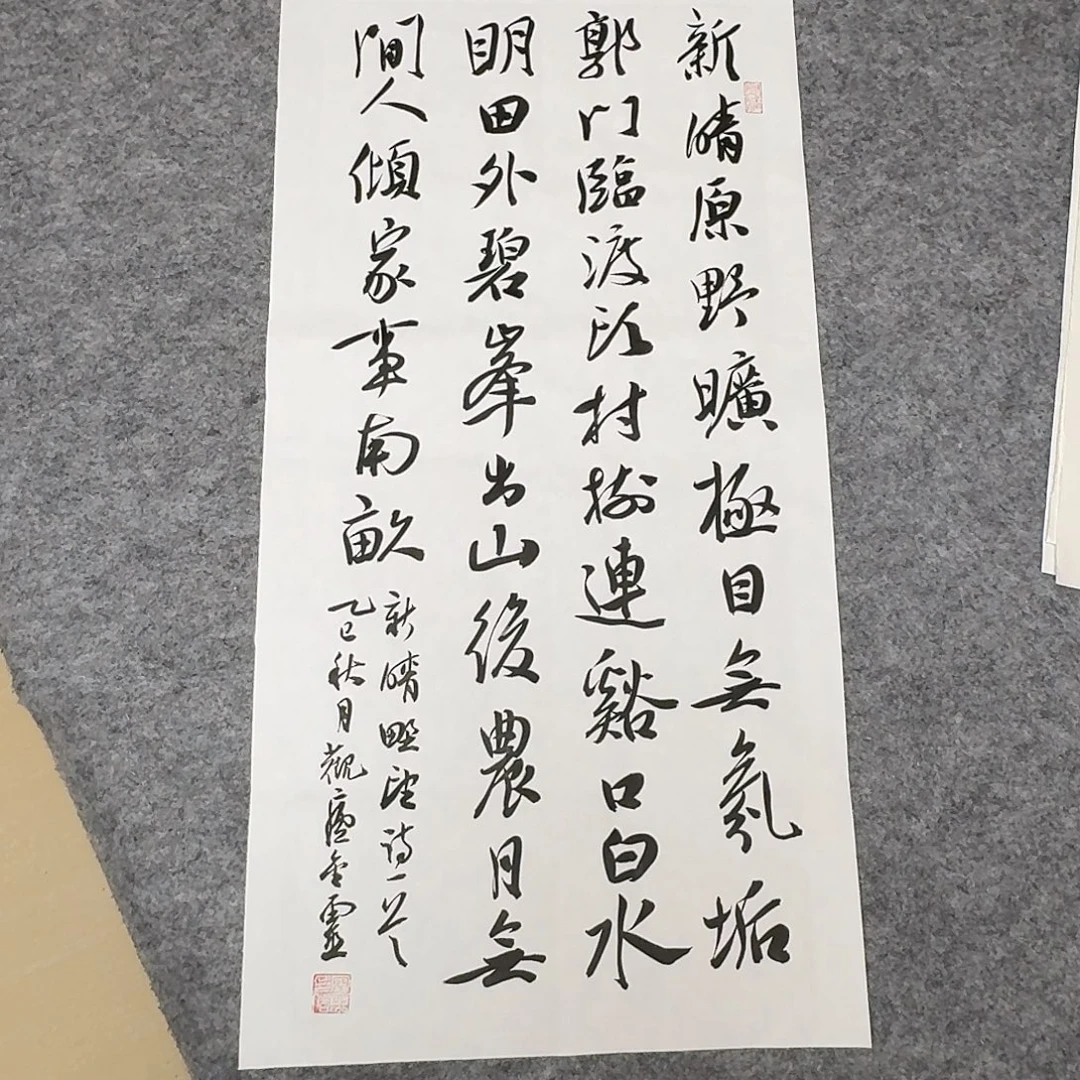 新晴原野曠極目無氛垢
郭門臨渡頭村樹連谿口白水
明田外碧峯出山後農月無
閒人傾家事南畝
新晴野望詩一首
乙巳秋月觀